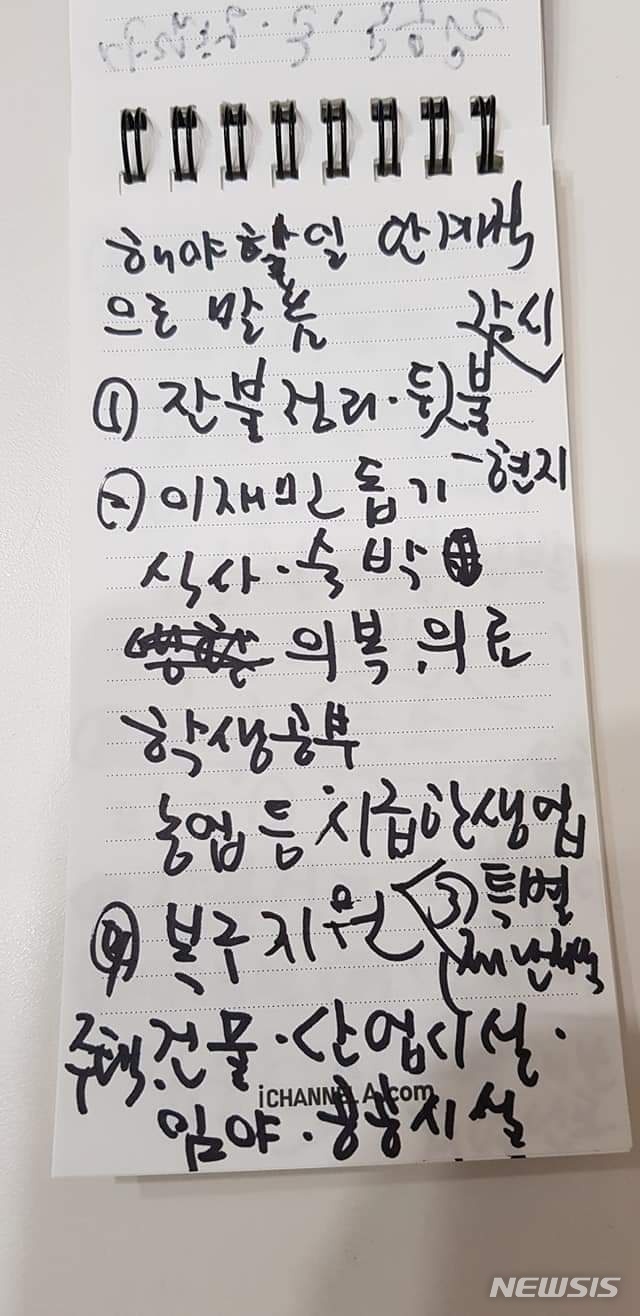 해야 할 일 단계적
으로 말씀
감시
① 잔불정리·뒷불
② 이재민 돕기 -현지
식사·숙박
의복, 의료
학생공부
농업 등 시급한 생업
④ 복구지원 ③ 특별
재난지역
주택, 건물·산업시설·
iCHANNELA.com
임야·공공시설
NEWSIS